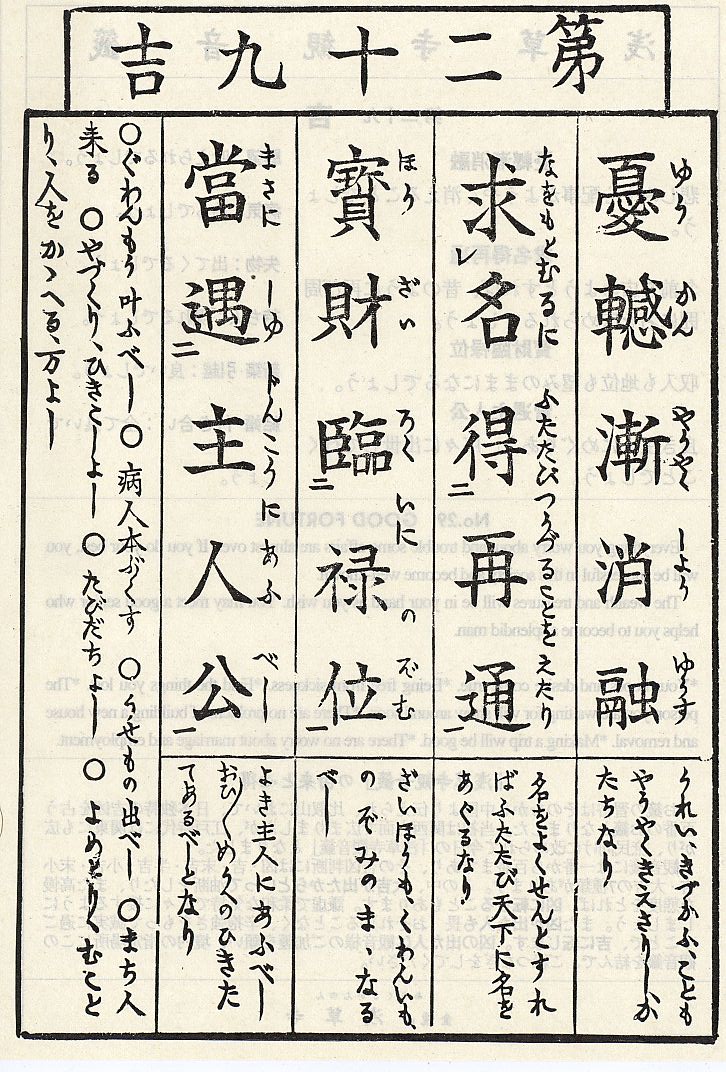 第二十九吉
ゆう かん やうやく しよう ゆうす
憂轗漸消融
うれいきづかふ、ことも
やうやくきえさりしか
たちなり
なをもとむるに ふたたびつうづることをえたり
求レ名得二再通一
名をよくせんとすれ
ばふたたび天下に名を
あぐるなり
ほう ざい ろく いに のぞむ
寶財臨二禄位一
ざいほうもくわんいも、
のぞみのまゝなる
べし
まさに しゆじんこうに あふ べし
當遇二主人公一
よき主人にあふべし
おひ〳〵めうへのひきた
てあるべしとなり
○ぐわんもう叶ふべし ○病人本ぶくす ○うせもの出べし ○まち人
来る ○やづくり、ひきこしよし ○たびだちよし ○よめとりむこと
り、人をかゝへる、万よし